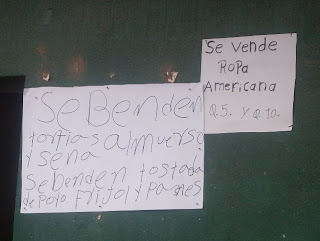 Se Benden
tortias almuerso
y sena
Se benden tostada
de poyo Frijol y Panes
Se Vende
Ropa
Americana
Q.5. Y Q.10.